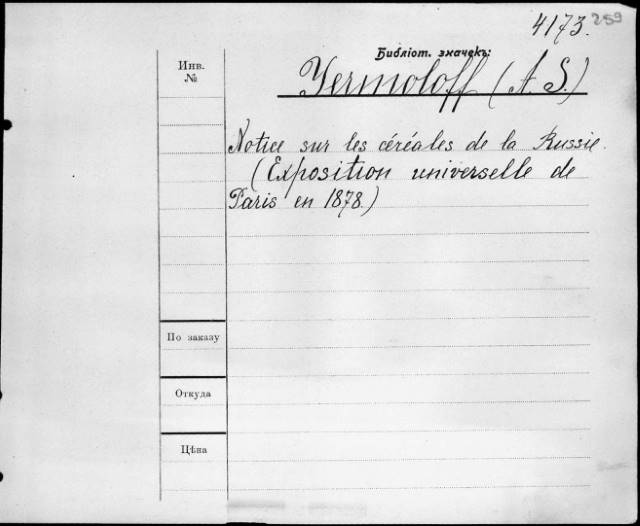 4173. 259
Библіот. значекъ:
Инв.
№
Yermoloff (A. S.)
Notice sur les céréales de la Russie.
(Exposition universelle de
Paris en 1878.)
По заказу
Откуда
Цѣна